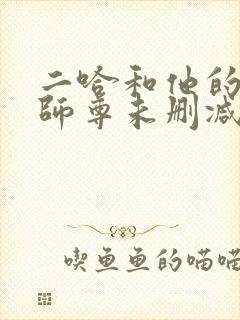 二哈和他的
師尊未删减
喫鱼鱼的喵喵